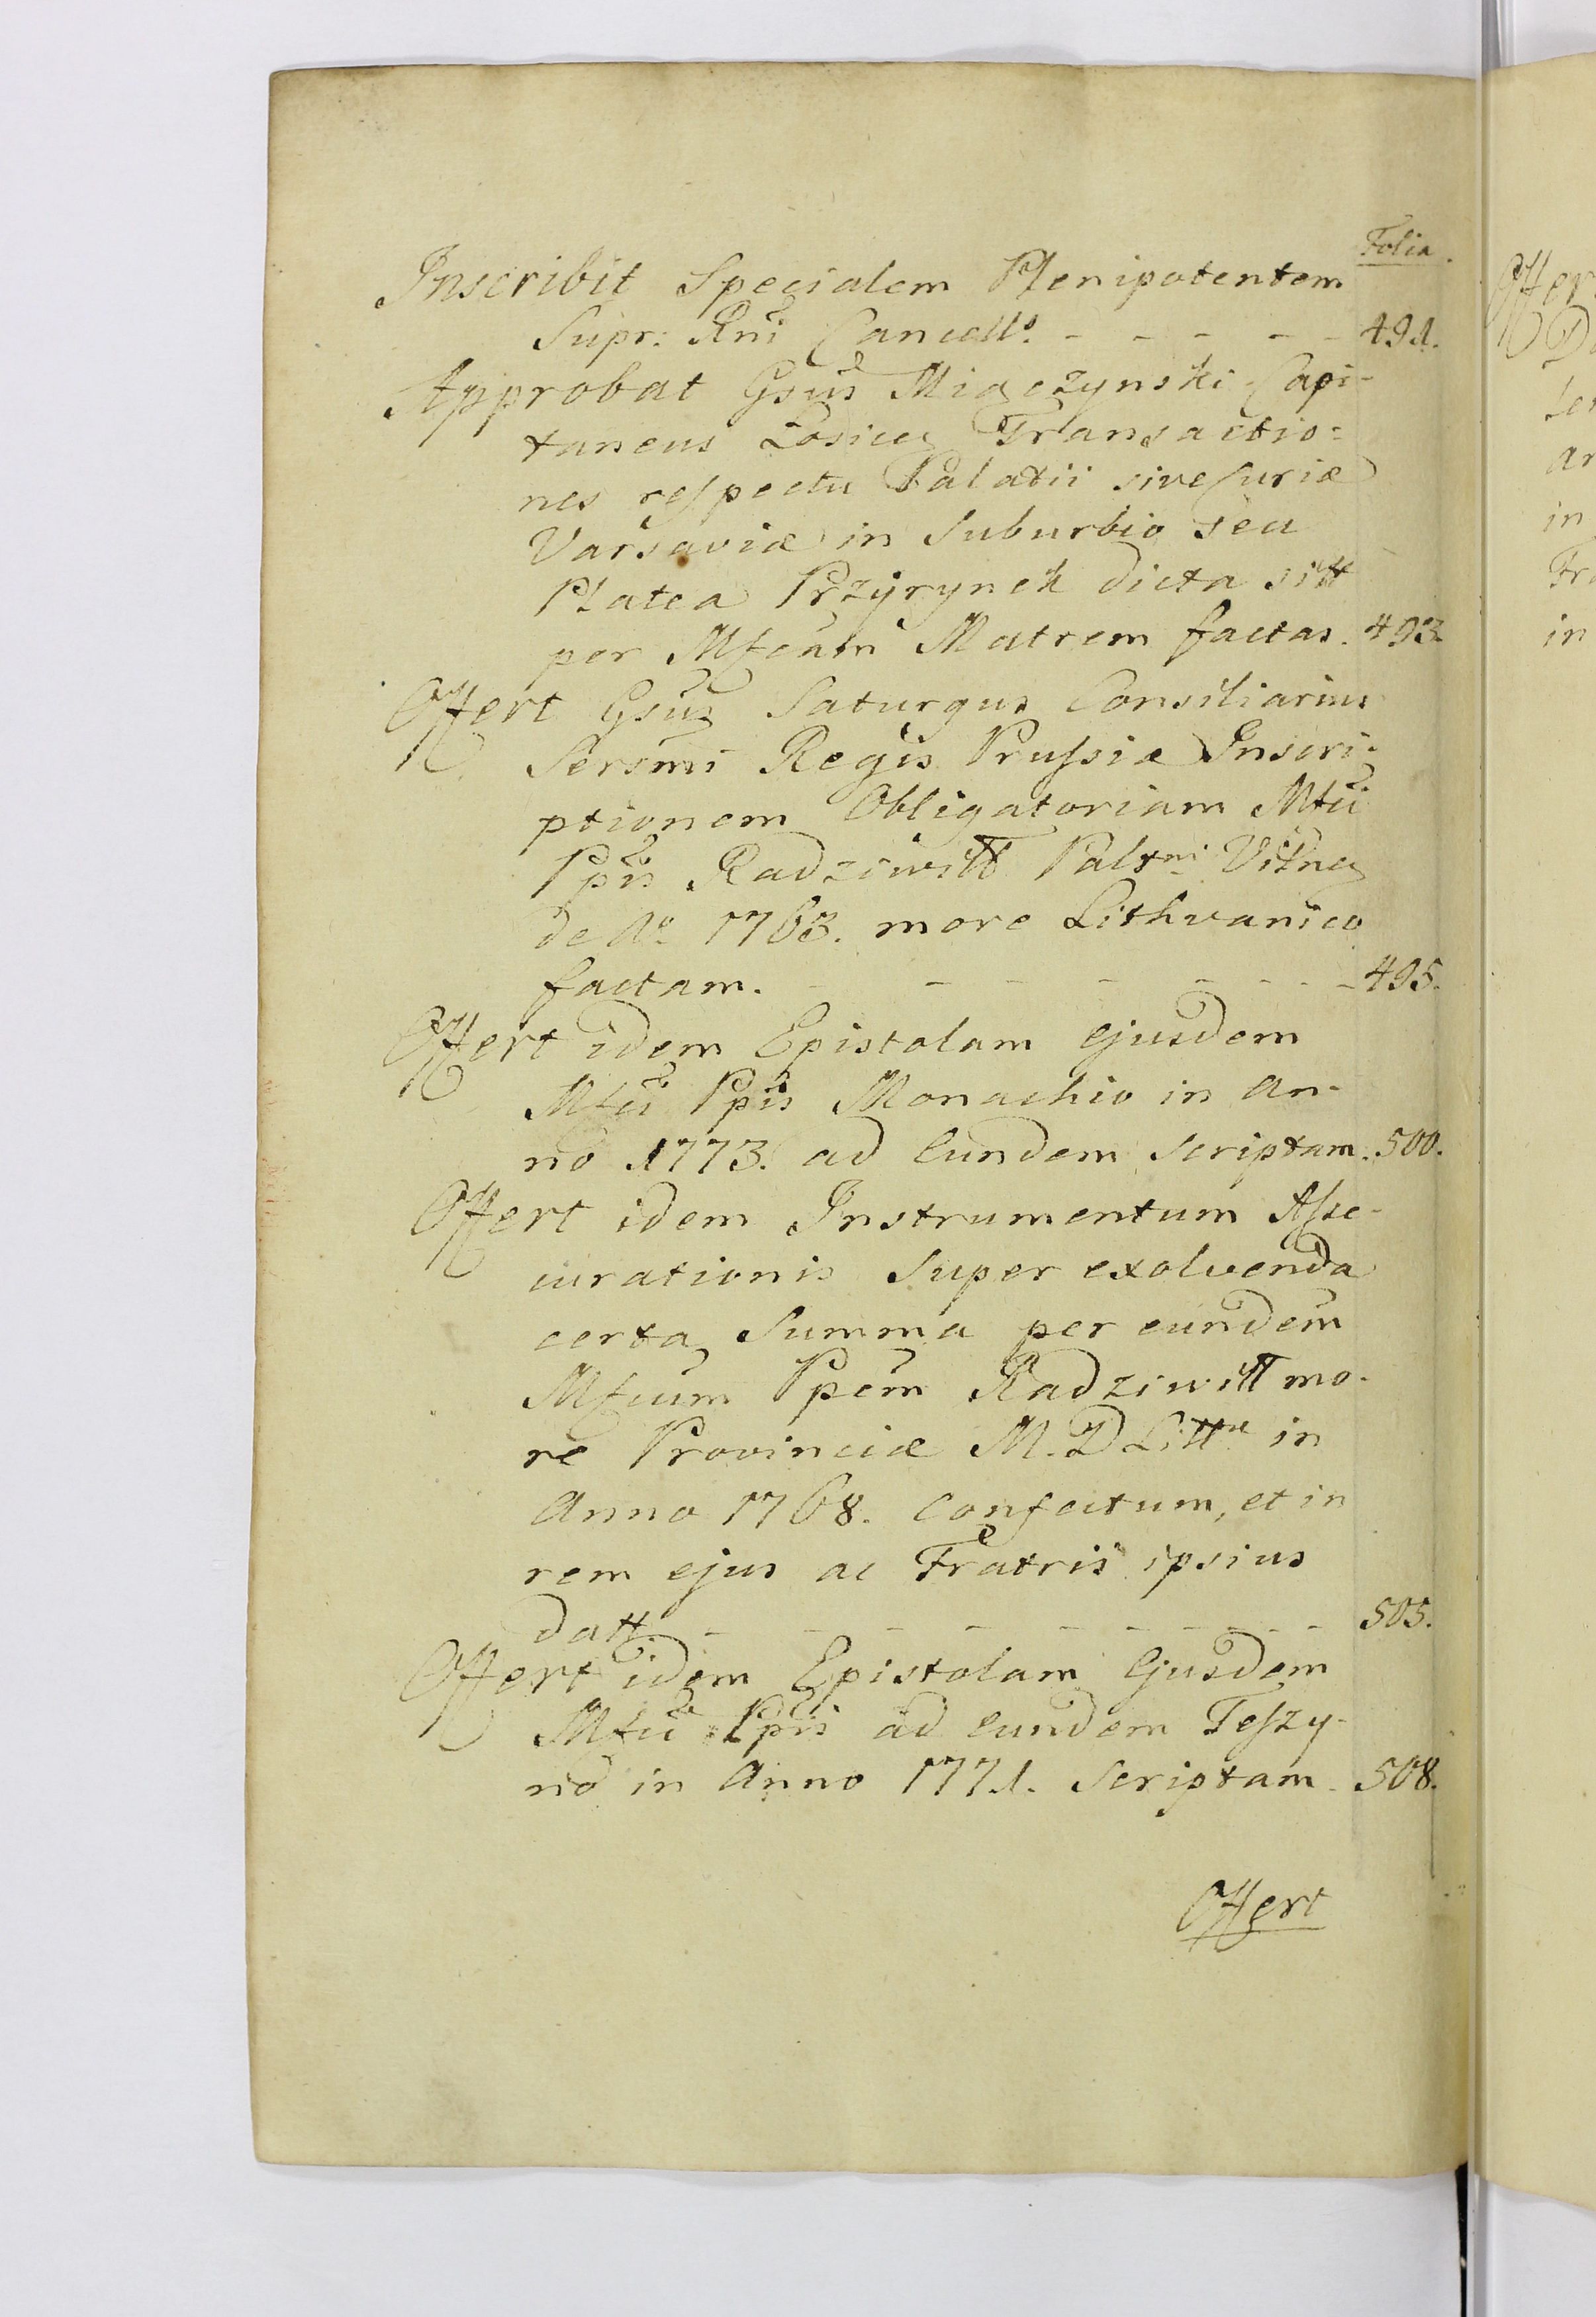 Folia.
Inscribit Specialem Plenipotentem
Supr: Rni Cancell? - - - - - 491.
Approbat Gsus Miączynski Capi-
taneus Łosicen Transactio=
nes respectu Palatii sive Curiæ
Varsaviæ in Suburbio seu
Platea Przyrynek dicta sitt
per Mfcam Matrem factas. 493.
Offert Gsus Saturgus Consiliarius
Sersmi Regis Prussiæ Inscri-
ptionem Obligatoriam Mfci
Ppis Radziwiłł Paltni Vilnen
de Ao 1763. more Lithvanico
factam. - - - - - - - 495.
Offert idem Epistolam ejusdem
Mfci Ppis Monachio in An-
no 1773. ad Eundem scriptam. 500.
Offert idem Instrumentum Asse-
curationis super exolvenda
certa Summa per eundem
Mfcum Ppem Radziwiłł mo-
re Provinciæ M. D Littu in
Anno 1768. confectum, et in
rem ejus ac Fratris ipsius
datt. - - - - - - - - 505.
Offert idem Epistolam Ejusdem
Mfci Ppis ad Eundem Teszy-
no in Anno 1771. Scriptam. 508.
Offert
Offer
in
in